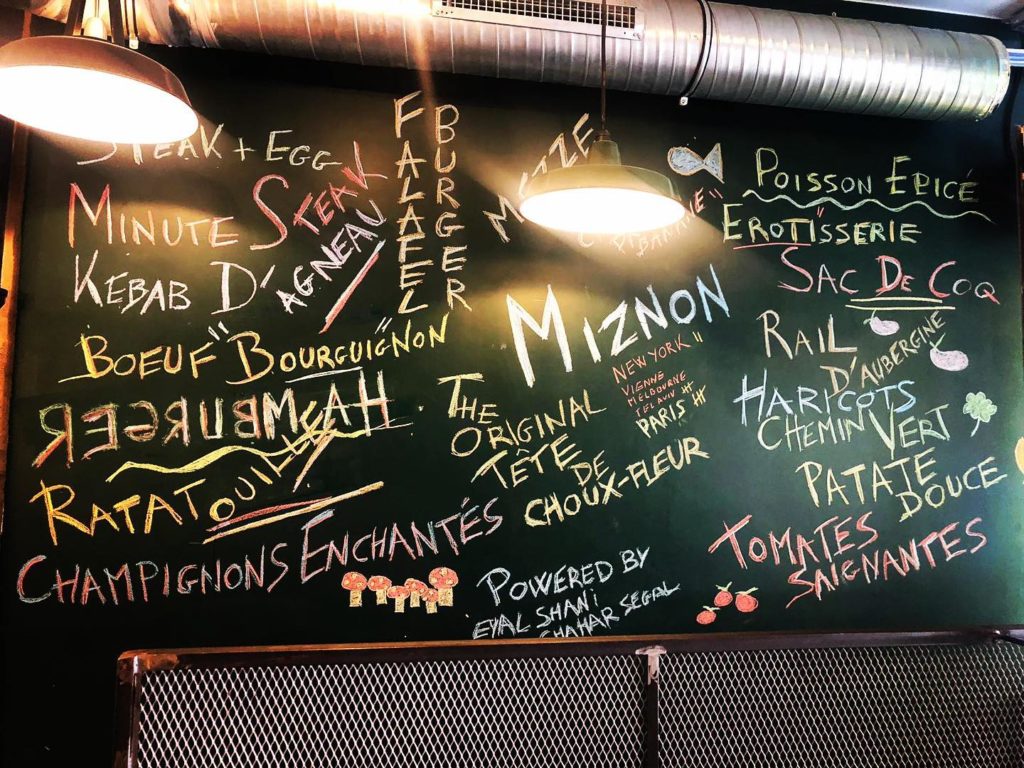 STEAK + EGG
MINUTE STEAK
KEBAB D'AGNEAU
BOEUF "BOURGUIGNON"
HAMBURGER
RATATOUILLE
CHAMPIGNONS ENCHANTÉS
FALAFEL
BURGER
MIZNON
NEW YORK
VIENNE
MELBOURNE
TEL AVIV
PARIS
THE
ORIGINAL
TÊTE
DE
CHOUX-FLEUR
POWERED BY
EYAL SHANI
SHAHAR SEGAL
POISSON EPICÉ
EROTISSERIE
SAC DE COQ
RAIL
D'AUBERGINE
HARICOTS
CHEMIN VERT
PATATE
DOUCE
TOMATES
SAIGNANTES